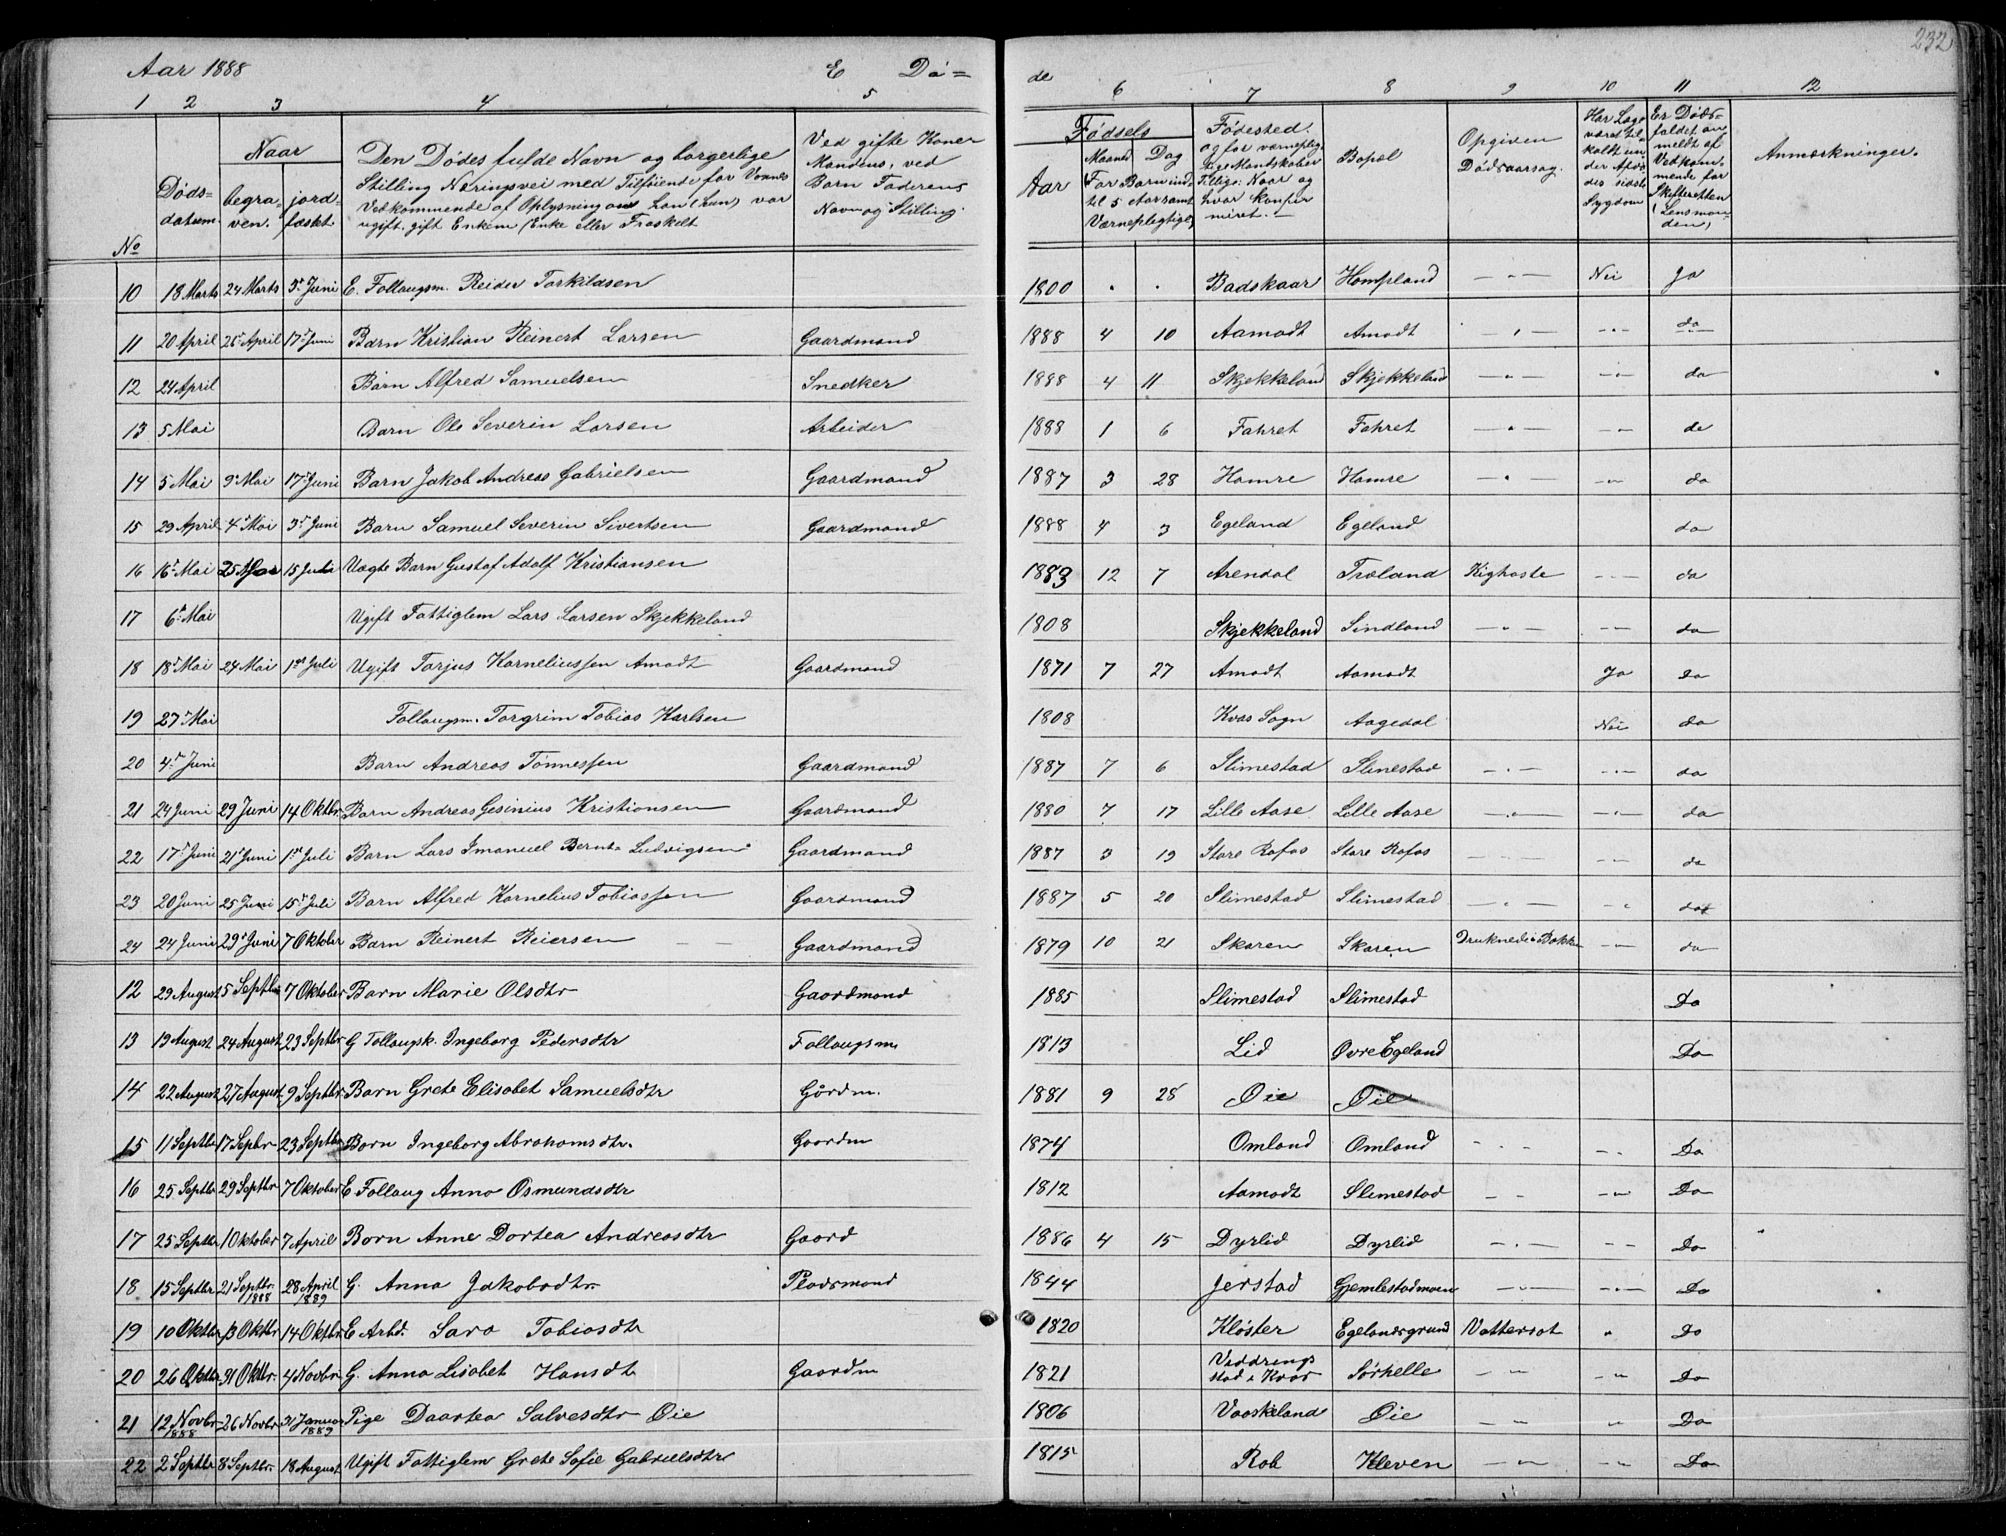 232
Aar 1888 E Dö=
de
1 2 3 4 5 6 7 8 9 10 11 12
No
Dödsdatum.
Naar
begraven.
jordfæstet
Den Dödes fulde Navn og borgerlige
Stilling Næringsvei med Tilföiende for Voxnes
Vedkommende af Oplysning om han (hun) var
ugift, gift Enkem (Enke eller Fraskelt
Ved gifte Koner
Mandens, ved
Barn Faderens
Navn og Stilling.
Fødsels
Aar
Maaned Dag
For Barn ind-
til 5 Aar samt
Værnepligtige
Fødested.
og for værneplig-
tige Mandskaber
Tillige: Naar og
hvor konfir
miret.
Bopæl
Opgiven
Dödsaarsag.
Har Læge
været til-
kaldt un-
der Afdö-
des sidste
Sygdom
Er Döds-
faldet an
meldt af
Vedkom-
mende for
Skifteretten
(Lensman-
den)
Anmærkninger.
10 18 Marts 24 Marts 3 Juni E. Follaugsm. Reider Torkildsen 1800 Badskaar Hompland — " — Nei Ja
11 20 April 25 April 17 Juni Barn Kristian Reinert Larsen Gaardmand 1888 4 10 Aamodt Amodt — " — — " — do
12 24 April Barn Alfred Samuelsen Snedker 1888 4 11 Skjekkeland Skjekkeland — " — — " — do
13 5 Mai Barn Ole Severin Larsen Arbeider 1888 1 6 Fahret Fahret — " — — " — do
14 5 Mai 9 Mai 17 Juni Barn Jakob Andreas Gabrielsen Gaardmand 1887 3 28 Hamre Hamre — " — — " — do
15 29 April 4 Mai 3 Juni Barn Samuel Severin Sivertsen Gaardmand 1888 4 3 Egeland Egeland do
16 16 Mai 25 Mai 15 Juli Uægte Barn Gustaf Adolf Kristiansen 1883 12 7 Arendal Træland Kighoste — " — do
17 6 Mai Ugift Fattiglem Lars Larsen Skjekkeland 1808 Skjekkeland Sindland — " — — " — do
18 18 Mai 24 Mai 1st Juli Ugift Tarjus Korneliussen Amodt Gaardmand 1871 7 27 Amodt Aamodt Ja do
19 27 Mai Follaugsm. Torgrim Tobias Karlsen 1808 Kvas Sogn Aagedal Nei do
20 4 Juni Barn Andreas Tönnessen Gaardmand 1887 7 6 Slimestad Slimestad — " — — " — do
21 24 Juni 29 Juni 14 Oktbr. Barn Andreas Gesinius Kristiansen Gaardmand 1880 7 17 Lille Aase Lille Aase — " — — " — do
22 17 Juni 21 Juni 1st Juli Barn Lars Imanuel Bernt Ludvigsen Gaardmand 1887 3 19 Store Rafos Store Rafos — " — — " — do
23 20 Juni 25 Juni 15 Juli Barn Alfred Kornelius Tobiassen Gaardmand 1887 5 20 Slimestad Slimestad — " — — " do
24 24 Juni 29 Juni 7 Oktober Barn Reinert Reiersen Gaardmand 1879 10 21 Skaren Skaren Druknede i Bækken — " — do
12 29 August 5 Septbr 7 Oktober Barn Marie Olsdtr Gaardmand 1885 Slimestad Slimestad Do
13 19 August 24 August 23 Septbr G Follaugsk. Ingeborg Pedersdtr Follaugsm 1813 Lid Øvre Egeland Do
14 22 August 27 August 9 Septbr Barn Grete Elisabet Samuelsdtr Gårdm. 1881 9 25 Øie Øie
15 11 Septbr 17 Septbr 23 Septbr Barn Ingeborg Abrahamsdtr. Gaardm 1874 Omland Omland — " — — " Do
16 25 Septbr 29 Septbr 7 Oktober E Follaug Anna Osmundsdtr 1812 Aamodt Slimestad — " — — " — Do
17 25 Septbr 1 Oktober 7 April Barn Anne Dortea Andreasdtr Gaard 1886 4 15 Dyrlid Dyrlid — " — — " — Do
18 15 Septbr 21 Septbr. 1888 28 April 1889 G. Anna Jakobsdtr. Pladsmand 1844 Jerstad Gjemlestadmoen — " — — " — Do
19 10 Oktbr 13 Oktbr 14 Oktbr E Arbd. Sara Tobiasdtr 1820 Klöster Egelandsgrund Vattersot " Do
20 26 Oktbr 31 Oktbr. 4 Novbr. G. Anna Lisabet Hansdtr Gaardm 1821 Veddrings
stad i Kvas Sörhelle — " — — " Do
21 12 Novbr 1888 26 Novbr 31 Januar 1889 Pige Daartea Salvesdtr Øie 1806 Vaaskeland Øie — " — " Do
22 2 Septbr 8 Septbr. 18 August Ugift Fattiglem Grete Sofie Gabrielsdtr 1815 Rob Kleven — " — — " Do